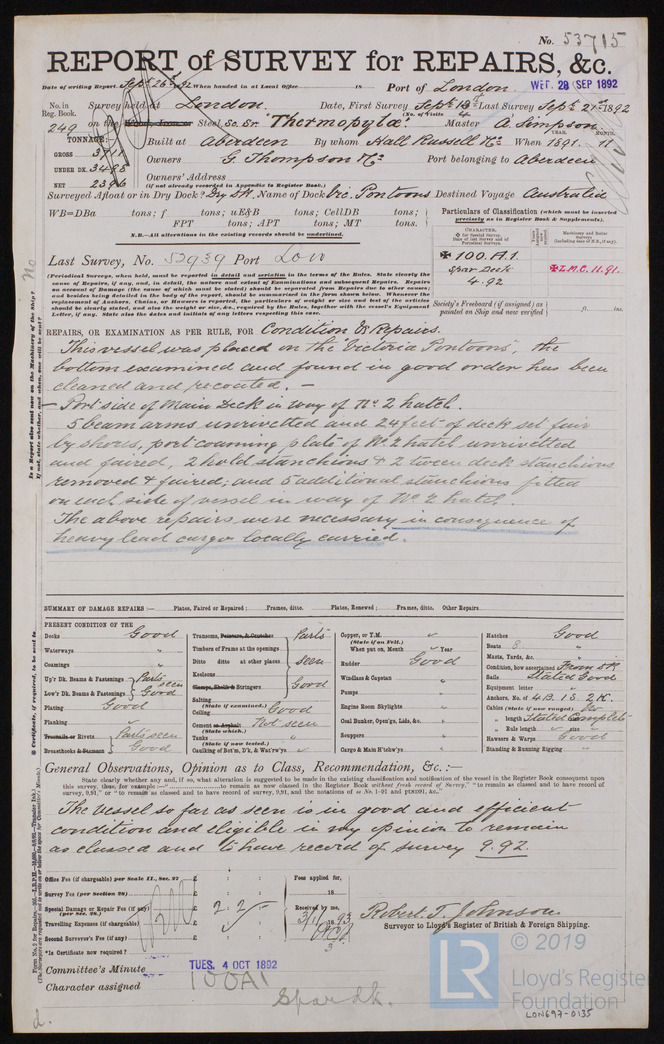 No. 53715
REPORT of SURVEY for REPAIRS, &c.
Date of writing Report Sept. 26th 92 When handed in at Local Office 18 Port of London.
WED. 28 SEP 1892
No. in Reg. Book. Survey held at London. Date, First Survey Sept. 13th Last Survey Sept. 21st 1892
(No. of Visits
249 on the Steel Sc. Sr. "Thermopylæ." Master A. Simpson
TONNAGE:
GROSS 3711
UNDER DK. 3498
NET 2396
Built at Aberdeen By whom Hall Russell & Co. When 1891. 11
YEAR. MONTH.
Owners G. Thompson & Co. Port belonging to Aberdeen
Owners' Address
(if not already recorded in Appendix to Register Book.)
Surveyed Afloat or in Dry Dock? Dry Dk. Name of Dock Vic. Pontoons Destined Voyage Australia
WB=DBa tons; f tons; uE&B tons; CellDB tons;
FPT tons; APT tons; MT tons.
N.B.—All alterations in the existing records should be underlined.
Particulars of Classification (which must be inserted precisely as in Register Book & Supplements).
CHARACTER.
Machinery and Boiler Surveys
✠ 100.A.1.
Spar Deck
4.92
✠ L.M.C. 11.91.
Society's Freeboard (if assigned) as painted on Ship and now verified ft. ins.
Last Survey, No. 52939 Port Lon
(Periodical Surveys, when held, must be reported in detail and seriatim in the terms of the Rules. State clearly the
cause of Repairs, if any, and, in detail, the nature and extent of Examinations and subsequent Repairs. Repairs
on account of Damage (the cause of which must be stated) should be separated from Repairs due to other causes;
and besides being detailed in the body of the report, should be summarized in the form shown below. Whenever the
replacement of Anchors, Chains, or Hawsers is reported, the particulars of weight or size and test of the articles
should be clearly stated, and also the weight or size, &c., required by the Rules, together with the vessel's Equipment
Letter, if any. State also the dates and initials of any letters respecting this case.
REPAIRS, OR EXAMINATION AS PER RULE, FOR Condition & Repairs.
This vessel was placed on the "Victoria Pontoons", the
bottom examined and found in good order has been
cleaned and recoated. —
— Port side of Main Deck in way of No. 2 hatch.
5 beam arms unrivetted and 24 feet of deck set fair
by shores, port coaming plate of No. 2 hatch unrivetted
and faired, 2 hold stanchions & 2 tween deck stanchions
removed & faired; and 5 additional stanchions fitted
on each side of vessel in way of No. 2 hatch.
The above repairs were necessary in consequence of
heavy lead cargo locally carried.
SUMMARY OF DAMAGE REPAIRS :— Plates, Faired or Repaired ; Frames, ditto. Plates, Renewed ; Frames, ditto. Other Repairs
PRESENT CONDITION OF THE
Decks Good
Waterways "
Coamings "
Up'r Dk. Beams & Fastenings Parts seen
Low'r Dk. Beams & Fastenings Good
Plating Good
Planking "
Treenails or Rivets Parts seen
Breasthooks & Stemson Good
Transoms, Pointers, & Crutches Parts
Timbers of Frame at the openings
Ditto ditto at other places seen
Keelsons
Clamps, Shelfs & Stringers Good
Salting
(State if examined.)
Ceiling Good
Cement or Asphalt Not seen
(State which.)
Tanks "
(State if now tested.)
Caulking of Bot'm, D'k, & Waterw'ys "
Copper, or Y.M. "
(State if on Felt.)
When put on, Month " Year
Rudder Good
Windlass & Capstan "
Pumps "
Engine Room Skylights "
Coal Bunker, Open'gs, Lids, &c. "
Scuppers "
Cargo & Main H'tchw'ys "
Hatches Good
Boats 8 "
Masts, Yards, &c. "
Condition, how ascertained From Dk.
Sails Stated Good
Equipment letter
Anchors, No. of 4 B. 1 S. 2 K.
Cables (State if now ranged) No
" length Stated Complete
" Rule length " size "
Hawsers & Warps Good
Standing & Running Rigging "
General Observations, Opinion as to Class, Recommendation, &c. :—
State clearly whether any, and if, so, what alteration is suggested to be made in the existing classification and notification of the vessel in the Register Book consequent upon
this survey, thus, for example :—"..........to remain as now classed in the Register Book without fresh record of Survey," "to remain as classed and to have record of
survey, 9,91," or "to remain as classed and to have record of survey, 9,91, and the notations of ss No. 1-91 and pnxs91, &c."
The vessel so far as seen is in good and efficient
condition and eligible in my opinion to remain
as classed and to have record of survey 9.92.
Office Fee (if chargeable) per Scale II., Sec. 27 £ : :
Survey Fee (per Section 28) £ : :
Special Damage or Repair Fee (if any) £ 2 : 2 :
(per Sec. 28.)
Travelling Expenses (if chargeable) £ : :
Second Surveyor's Fee (if any) £ : :
*Is Certificate now required ?
Fees applied for,
18
Received by me,
3/1/ 1893
Robert. T. Johnson.
Surveyor to Lloyd's Register of British & Foreign Shipping.
Committee's Minute TUES. 4 OCT 1892
Character assigned 100A1
Spar Dk.
© 2019
LR
Lloyd's Register
Foundation
LON697-0135
Is a Report also sent now on the Machinery of the Ship? No